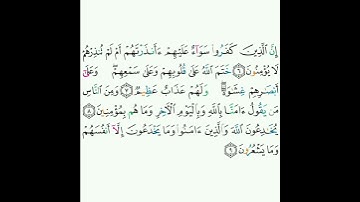 إِنَّ ٱلَّذِينَ كَفَرُوا۟ سَوَآءٌ عَلَيْهِمْ ءَأَنذَرْتَهُمْ أَمْ لَمْ تُنذِرْهُمْ
لَا يُؤْمِنُونَ ٦ خَتَمَ ٱللَّهُ عَلَىٰ قُلُوبِهِمْ وَعَلَىٰ سَمْعِهِمْ ۖ وَعَلَىٰٓ
أَبْصَٰرِهِمْ غِشَٰوَةٌ ۖ وَلَهُمْ عَذَابٌ عَظِيمٌ ٧ وَمِنَ ٱلنَّاسِ
مَن يَقُولُ ءَامَنَّا بِٱللَّهِ وَبِٱلْيَوْمِ ٱلْءَاخِرِ وَمَا هُم بِمُؤْمِنِينَ ٨
يُخَٰدِعُونَ ٱللَّهَ وَٱلَّذِينَ ءَامَنُوا۟ وَمَا يَخْدَعُونَ إِلَّآ أَنفُسَهُمْ
وَمَا يَشْعُرُونَ ٩